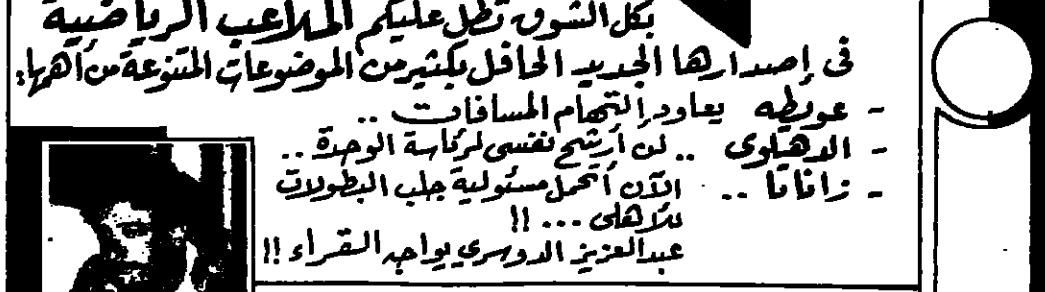 بكل الشوق تطل عليكم الملاعب الرياضية
فى إصدارها الجديد الحافل بكثير من الموضوعات المتنوعة من أهمها:
- عويطه يعاود إلتهام المسافات ..
- الدهلوى .. لن أرشح نفسى لرئاسة الوحدة ..
- زاناتا .. الآن أتحمل مسئولية جلب البطولات
للأهلى ... !!
عبدالعزيز الدوسري يواجه القراء !!